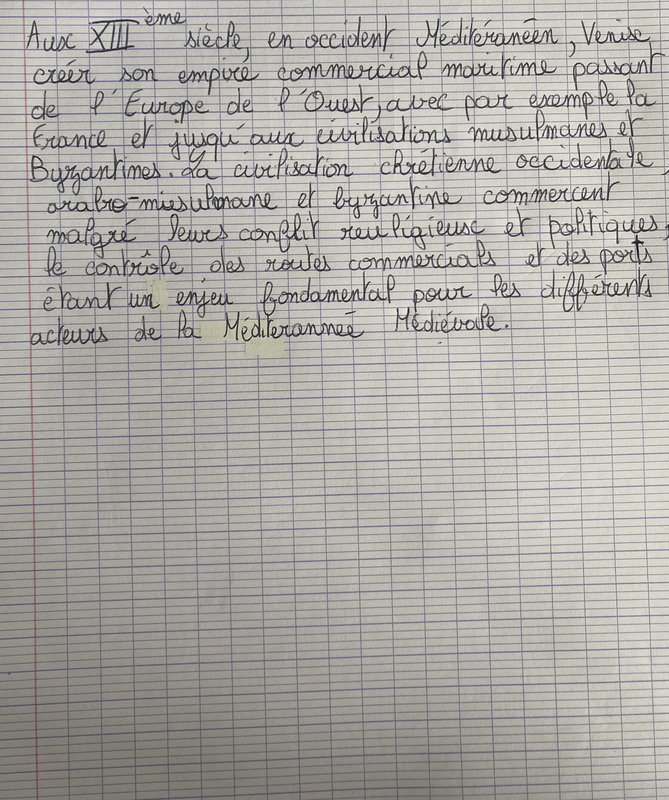 Aux XIIIème siècle, en occident Méditéranéen, Venise
créer son empire commercial maritime passant
de l'Europe de l'Ouest, avec par exemple la
France et jusqu'aux civilisations musulmanes et
Byzantines. La civilisation chrétienne occidentale,
arabo-musulmane et byzantine commercent
malgré leurs conflit reuligieuse et politiques,
le contrôle des routes commercials et des ports
étant un enjeu fondamental pour les différents
acteurs de la Méditeranneé Médiévale.